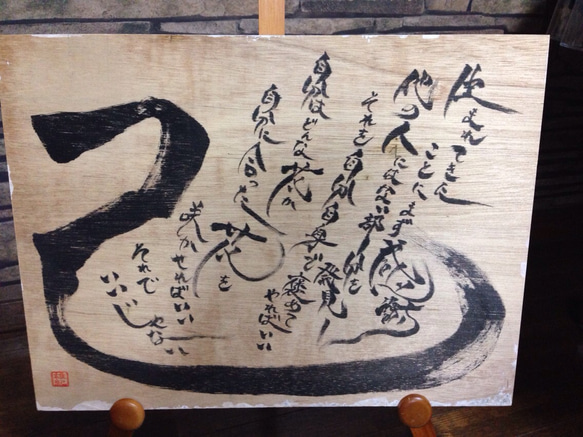 生まれてきた
ことにまず感謝
他の人にはない部分を
それを自分自身で発見し
褒めてやればいい
自分はどんな花か
自分に合った花を
咲かせればいい
それで
いいじゃない
己